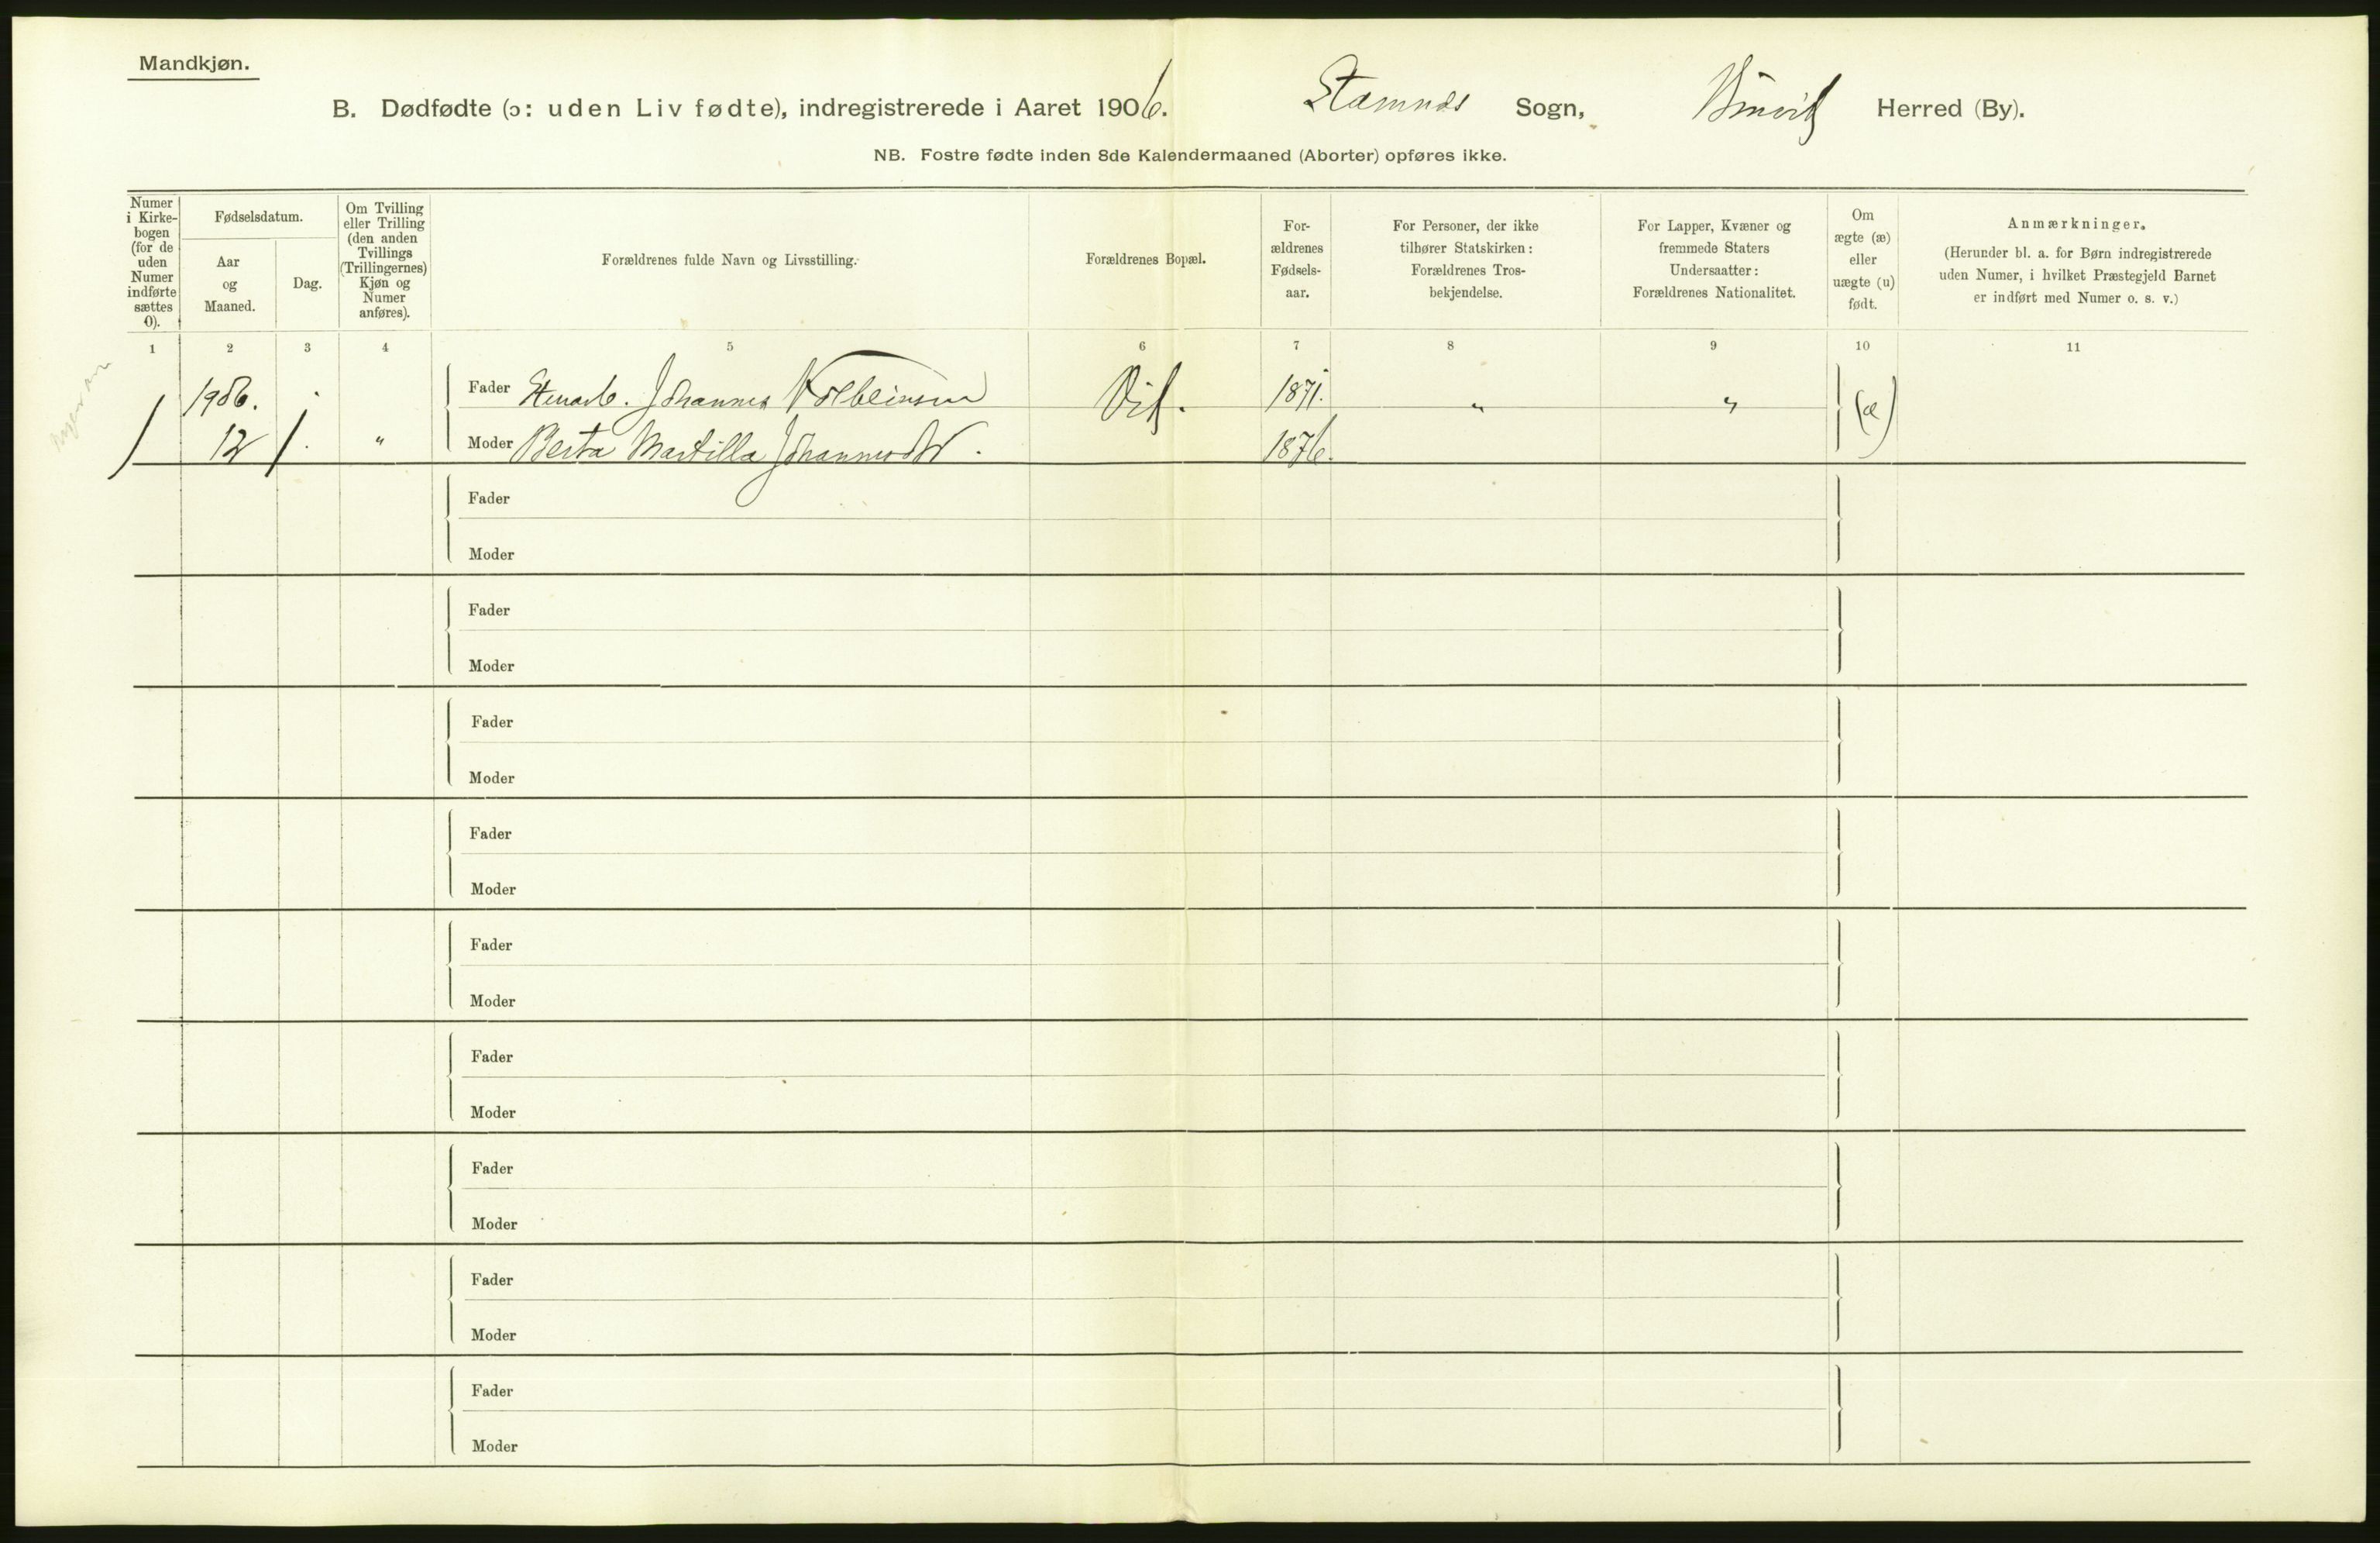 Mandkjøn.
B. Dødfødte (ɔ: uden Liv fødte), indregistrerede i Aaret 1906. Stamnes Sogn, Herred (By).
NB. Fostre fødte inden 8de Kalendermaaned (Aborter) opføres ikke.
Numer i Kirke-
bogen
(for de
uden
Numer
indførte
sættes
0).
Fødselsdatum.
Aar
og
Maaned.
Dag.
Om Tvilling
eller Trilling
(den anden
Tvillings
(Trillingernes)
Kjøn og
Numer
anføres).
Forældrenes fulde Navn og Livsstilling.
Forældrenes Bopæl.
For-
ældrenes
Fødsels-
aar.
For Personer, der ikke
tilhører Statskirken:
Forældrenes Tros-
bekjendelse.
For Lapper, Kvæner og
fremmede Staters
Undersaatter:
Forældrenes Nationalitet.
Om
ægte (æ)
eller
uægte (u)
født.
Anmærkninger.
(Herunder bl. a. for Børn indregistrerede
uden Numer, i hvilket Præstegjeld Barnet
er indført med Numer o. s. v.)
1 2 3 4 5 6 7 8 9 10 11
1906. Fader Stenarb. Johannes Kolbeinsen Vik. 1871. " " (æ)
1 12 1. " Moder Berta Martilla Johannesdtr. 1876.
Fader
Moder
Fader
Moder
Fader
Moder
Fader
Moder
Fader
Moder
Fader
Moder
Fader
Moder
Fader
Moder
Fader
Moder